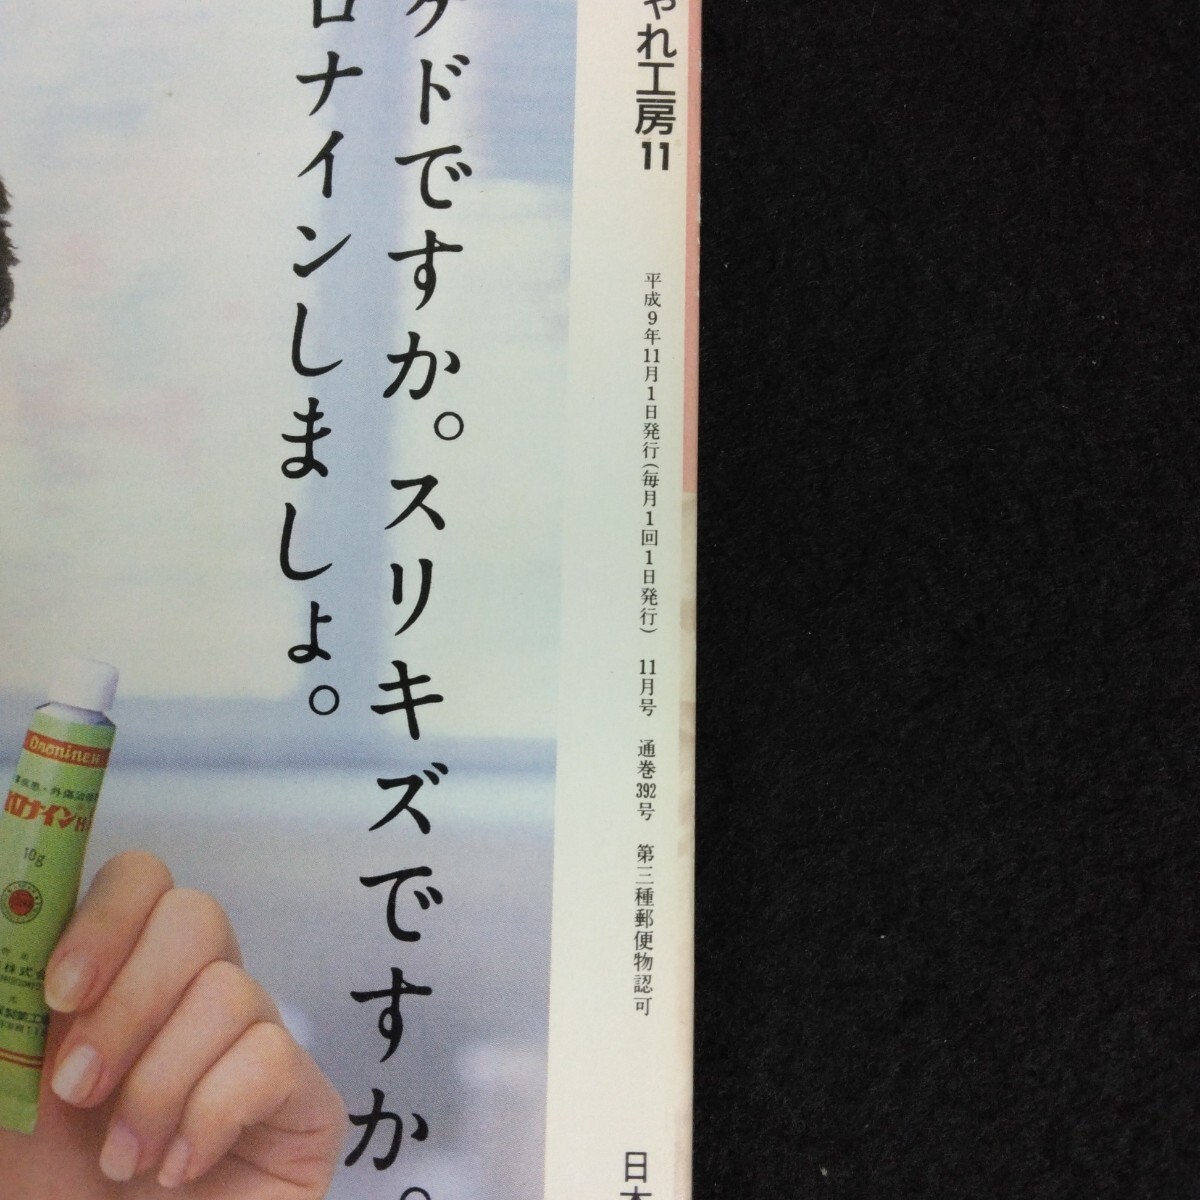 ゃれ工房11
平成9年11月1日発行(毎月1回1日発行) 11月号 通巻392号 第三種郵便物認可
日本
ケドですか。スリキズですか。
ロナインしましょ。
OronineH
外傷治
ロナインH
10g
株式会
製薬工